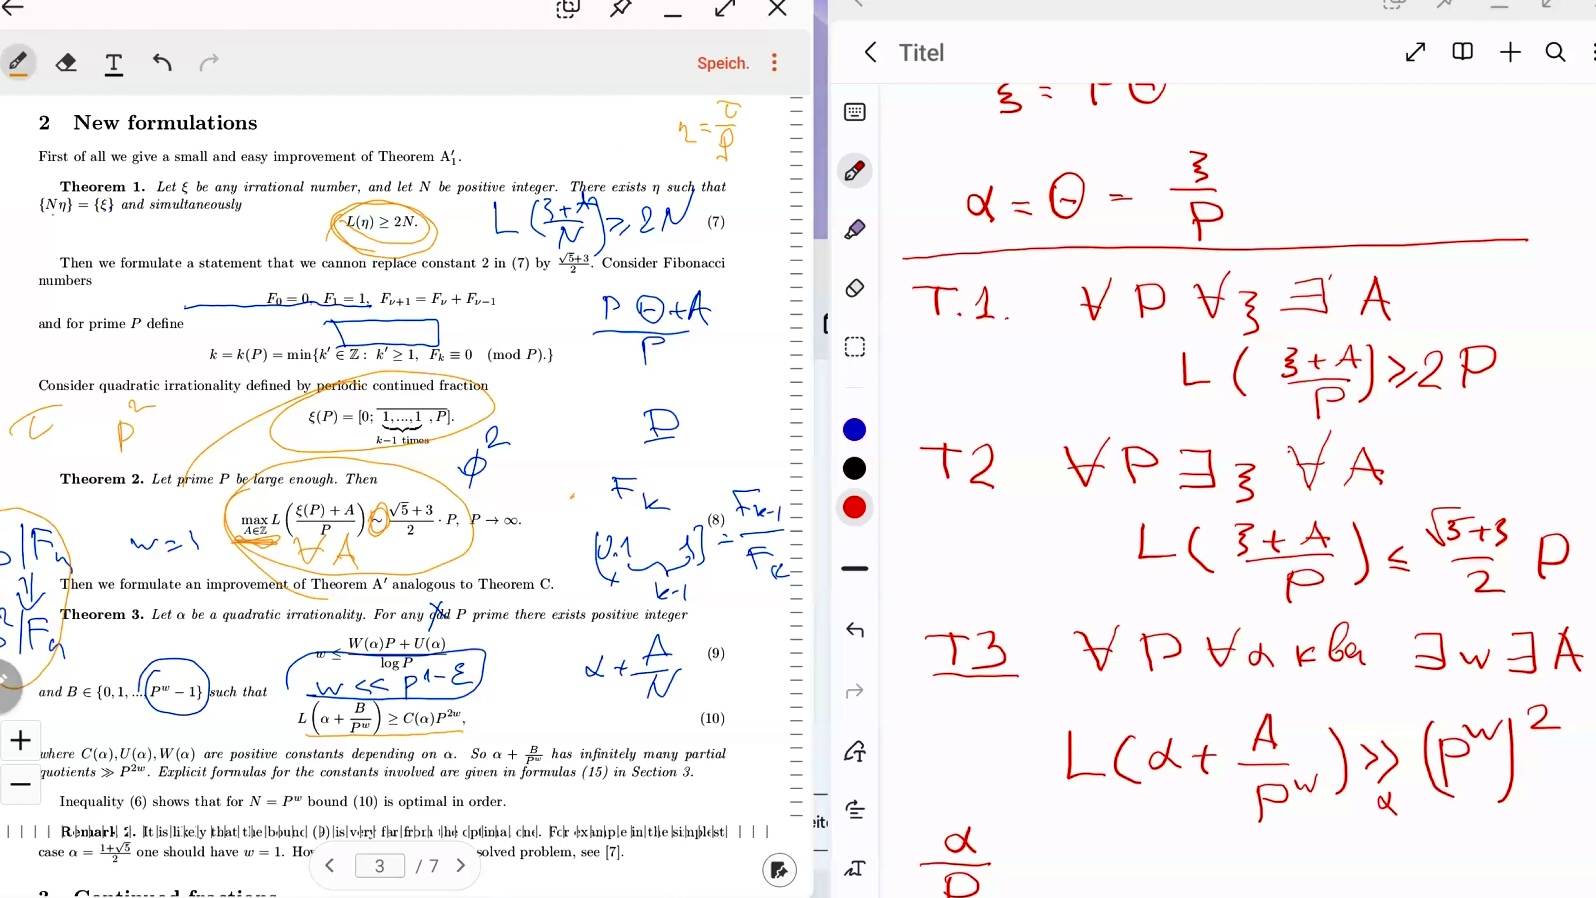 Speich.
Titel
2 New formulations
η = τ/P
First of all we give a small and easy improvement of Theorem A′₁.
Theorem 1. Let ξ be any irrational number, and let N be positive integer. There exists η such that
{Nη} = {ξ} and simultaneously
L(η) ≥ 2N. (7)
L(ξ+A/N) ≥ 2N
Then we formulate a statement that we cannon replace constant 2 in (7) by (√5+3)/2. Consider Fibonacci
numbers
F₀ = 0, F₁ = 1, Fν+1 = Fν + Fν−1
and for prime P define
k = k(P) = min{k′ ∈ ℤ : k′ ≥ 1, Fₖ ≡ 0 (mod P).}
PΘ+A/P
Consider quadratic irrationality defined by periodic continued fraction
ξ(P) = [0; 1, ..., 1, P].
k−1 times
τ P²
P
ϕ²
Theorem 2. Let prime P be large enough. Then
max A∈ℤ L((ξ(P) + A)/P) ~ (√5 + 3)/2 · P, P → ∞. (8)
w=1
∀A
Fₖ
[0,1 1] = Fₖ₋₁/Fₖ
k-1
Then we formulate an improvement of Theorem A′ analogous to Theorem C.
Theorem 3. Let α be a quadratic irrationality. For any odd P prime there exists positive integer
w ≤ (W(α)P + U(α))/log P (9)
w << P^1-ε
α + A/N
and B ∈ {0, 1, ..., P^w − 1} such that
L(α + B/P^w) ≥ C(α)P^2w, (10)
where C(α), U(α), W(α) are positive constants depending on α. So α + B/P^w has infinitely many partial
quotients ≫ P^2w. Explicit formulas for the constants involved are given in formulas (15) in Section 3.
Inequality (6) shows that for N = P^w bound (10) is optimal in order.
Remark 1. It is likely that the bound (9) is very far from the optimal one. For example in the simplest
case α = (1+√5)/2 one should have w = 1. solved problem, see [7].
3 / 7
ξ = PΘ
α = Θ = ξ/P
T.1. ∀P ∀ξ ∃A
L(ξ+A/P) ≥ 2P
T2 ∀P ∃ξ ∀A
L(ξ+A/P) ≤ √5+3/2 P
T3 ∀P ∀α ква ∃w ∃A
L(α + A/P^w) ≫α (P^w)²
α/P